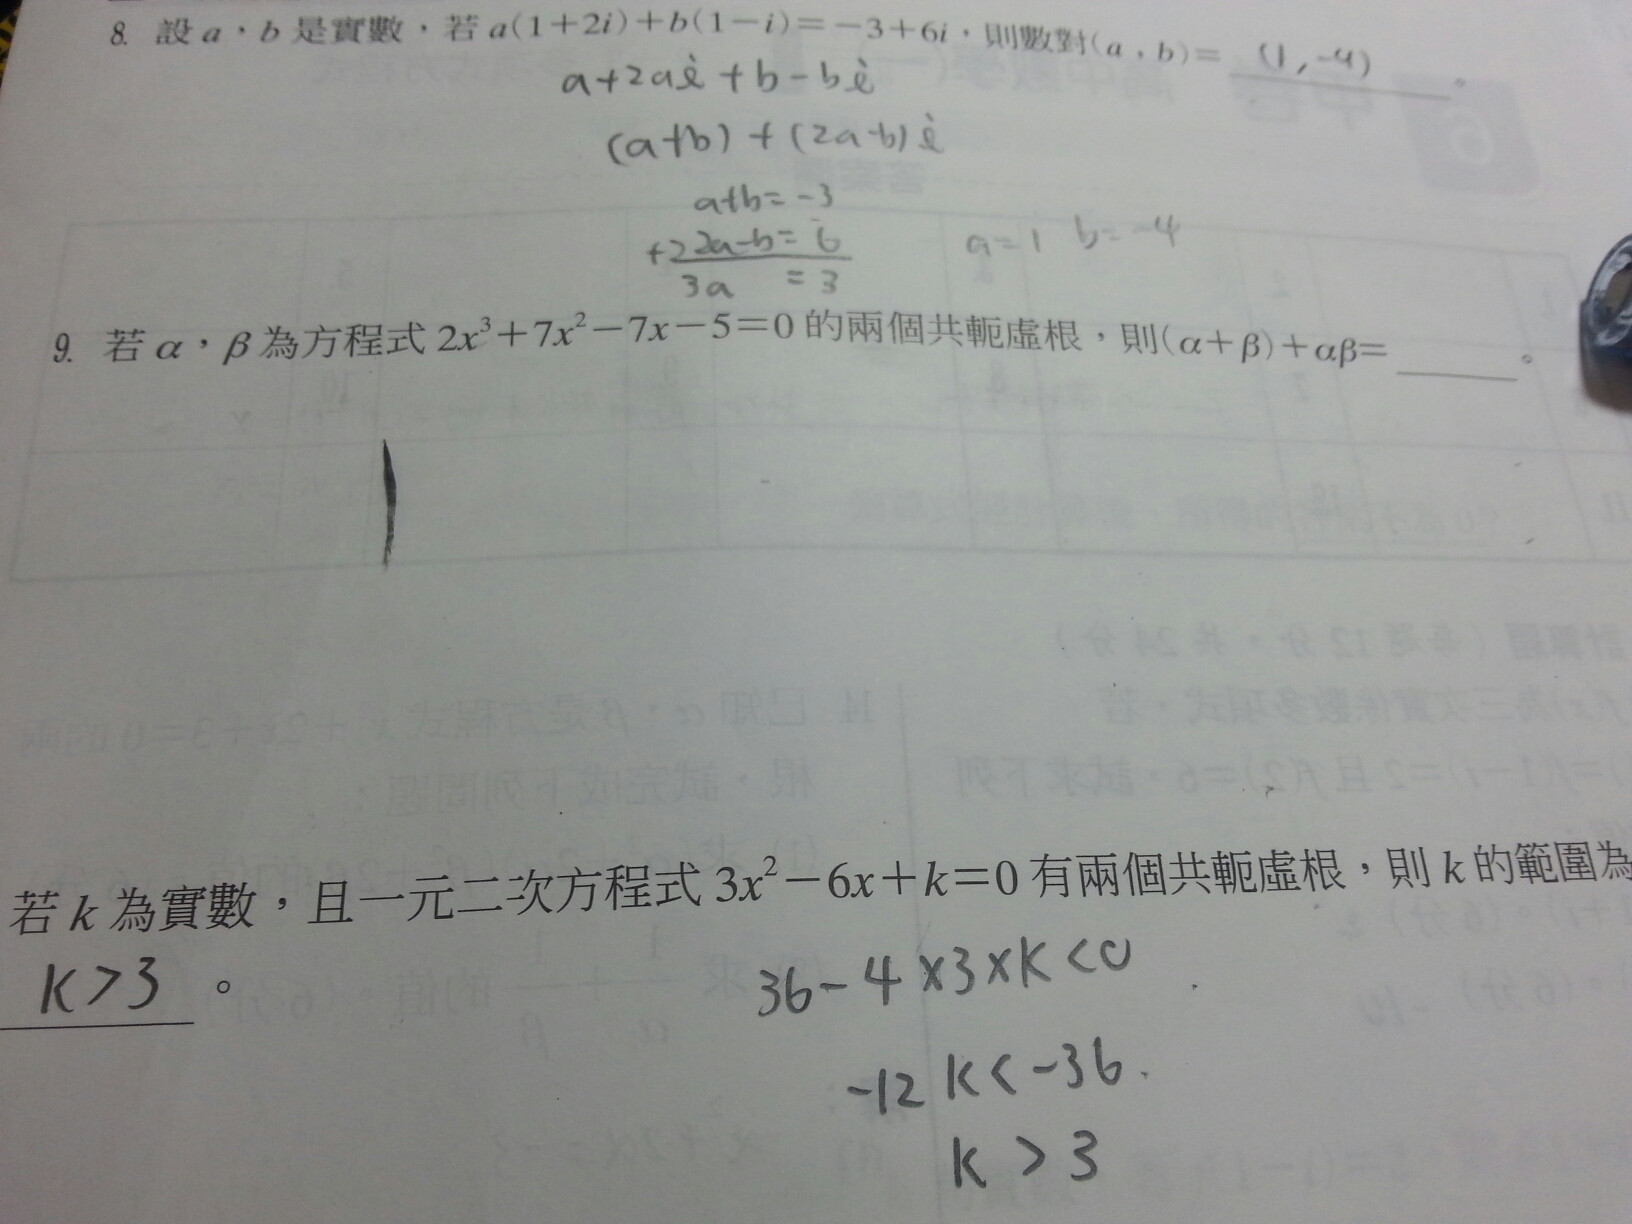 8. 設 a，b 是實數，若 a(1+2i)+b(1−i)=−3+6i，則數對(a，b)= (1,-4) 。
a+2ai+b-bi
(a+b)+(2a-b)i
a+b=-3
+2 2a-b=6
a=1 b=-4
3a =3
9. 若 α，β 為方程式 2x³+7x²−7x−5=0 的兩個共軛虛根，則(α+β)+αβ= 。
若 k 為實數，且一元二次方程式 3x²−6x+k=0 有兩個共軛虛根，則 k 的範圍為
k>3 。
36-4×3×k<0
-12k<-36.
k>3